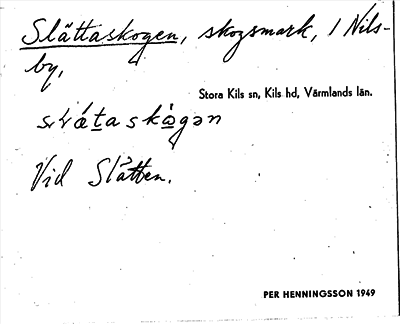 Slättaskogen, skogsmark, i Nils-
by,
Stora Kils sn, Kils hd, Värmlands län.
Vid Slätten.
PER HENNINGSSON 1949